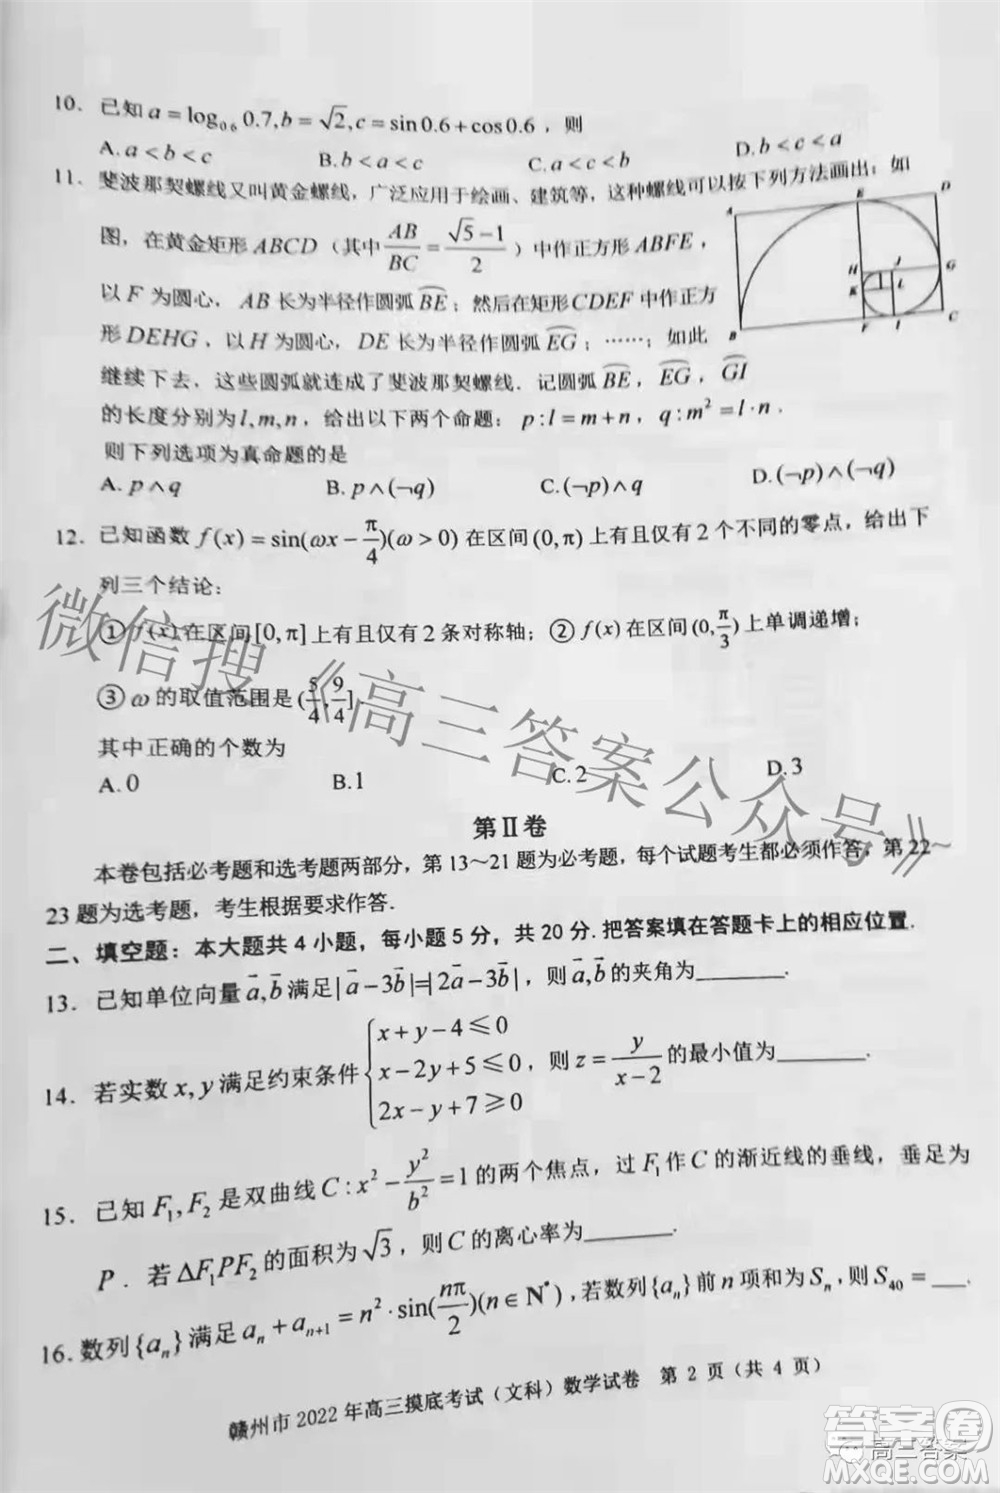 10. 已知 a = log₀.₆ 0.7, b = √2, c = sin0.6 + cos0.6，则
A. a < b < c B. b < a < c C. a < c < b D. b < c < a
11. 斐波那契螺线又叫黄金螺线，广泛应用于绘画、建筑等，这种螺线可以按下列方法画出：如
图，在黄金矩形 ABCD（其中 AB/BC = (√5−1)/2）中作正方形 ABFE，
以 F 为圆心，AB 长为半径作圆弧 BE；然后在矩形 CDEF 中作正方
形 DEHG，以 H 为圆心，DE 长为半径作圆弧 EG；……；如此
继续下去，这些圆弧就连成了斐波那契螺线．记圆弧 BE，EG，GI
的长度分别为 l, m, n，给出以下两个命题：p : l = m + n，q : m² = l · n．
则下列选项为真命题的是
A. p∧q B. p∧(¬q) C. (¬p)∧q D. (¬p)∧(¬q)
A E D
H J G
K L
B F I C
12. 已知函数 f(x) = sin(ωx − π/4)(ω > 0) 在区间 (0, π) 有且仅有 2 个不同的零点，给出下
列三个结论：
① f(x) 在区间 [0, π] 上有且仅有 2 条对称轴；② f(x) 在区间 (0, π/3) 上单调递增；
③ ω 的取值范围是 (5/4, 9/4]
其中正确的个数为
A. 0 B. 1 C. 2 D. 3
第Ⅱ卷
本卷包括必考题和选考题两部分，第 13～21 题为必考题，每个试题考生都必须作答，第 22～
23 题为选考题，考生根据要求作答．
二、填空题：本大题共 4 小题，每小题 5 分，共 20 分．把答案填在答题卡上的相应位置．
13. 已知单位向量 a, b 满足 |a − 3b| = |2a − 3b|，则 a, b 的夹角为________．
14. 若实数 x, y 满足约束条件 { x + y − 4 ⩽ 0
x − 2y + 5 ⩽ 0
2x − y + 7 ⩾ 0 ，则 z = y/(x−2) 的最小值为________．
15. 已知 F₁, F₂ 是双曲线 C : x² − y²/b² = 1 的两个焦点，过 F₁ 作 C 的渐近线的垂线，垂足为
P．若 ΔF₁PF₂ 的面积为 √3，则 C 的离心率为________．
16. 数列 {aₙ} 满足 aₙ + aₙ₊₁ = n² · sin(nπ/2)(n ∈ N*)，若数列 {aₙ} 前 n 项和为 Sₙ，则 S₄₀ = ___．
赣州市 2022 年高三摸底考试（文科）数学试卷 第 2 页（共 4 页）
微信搜《高三答案公众号》
高三答案
答案圈
MXQE.COM